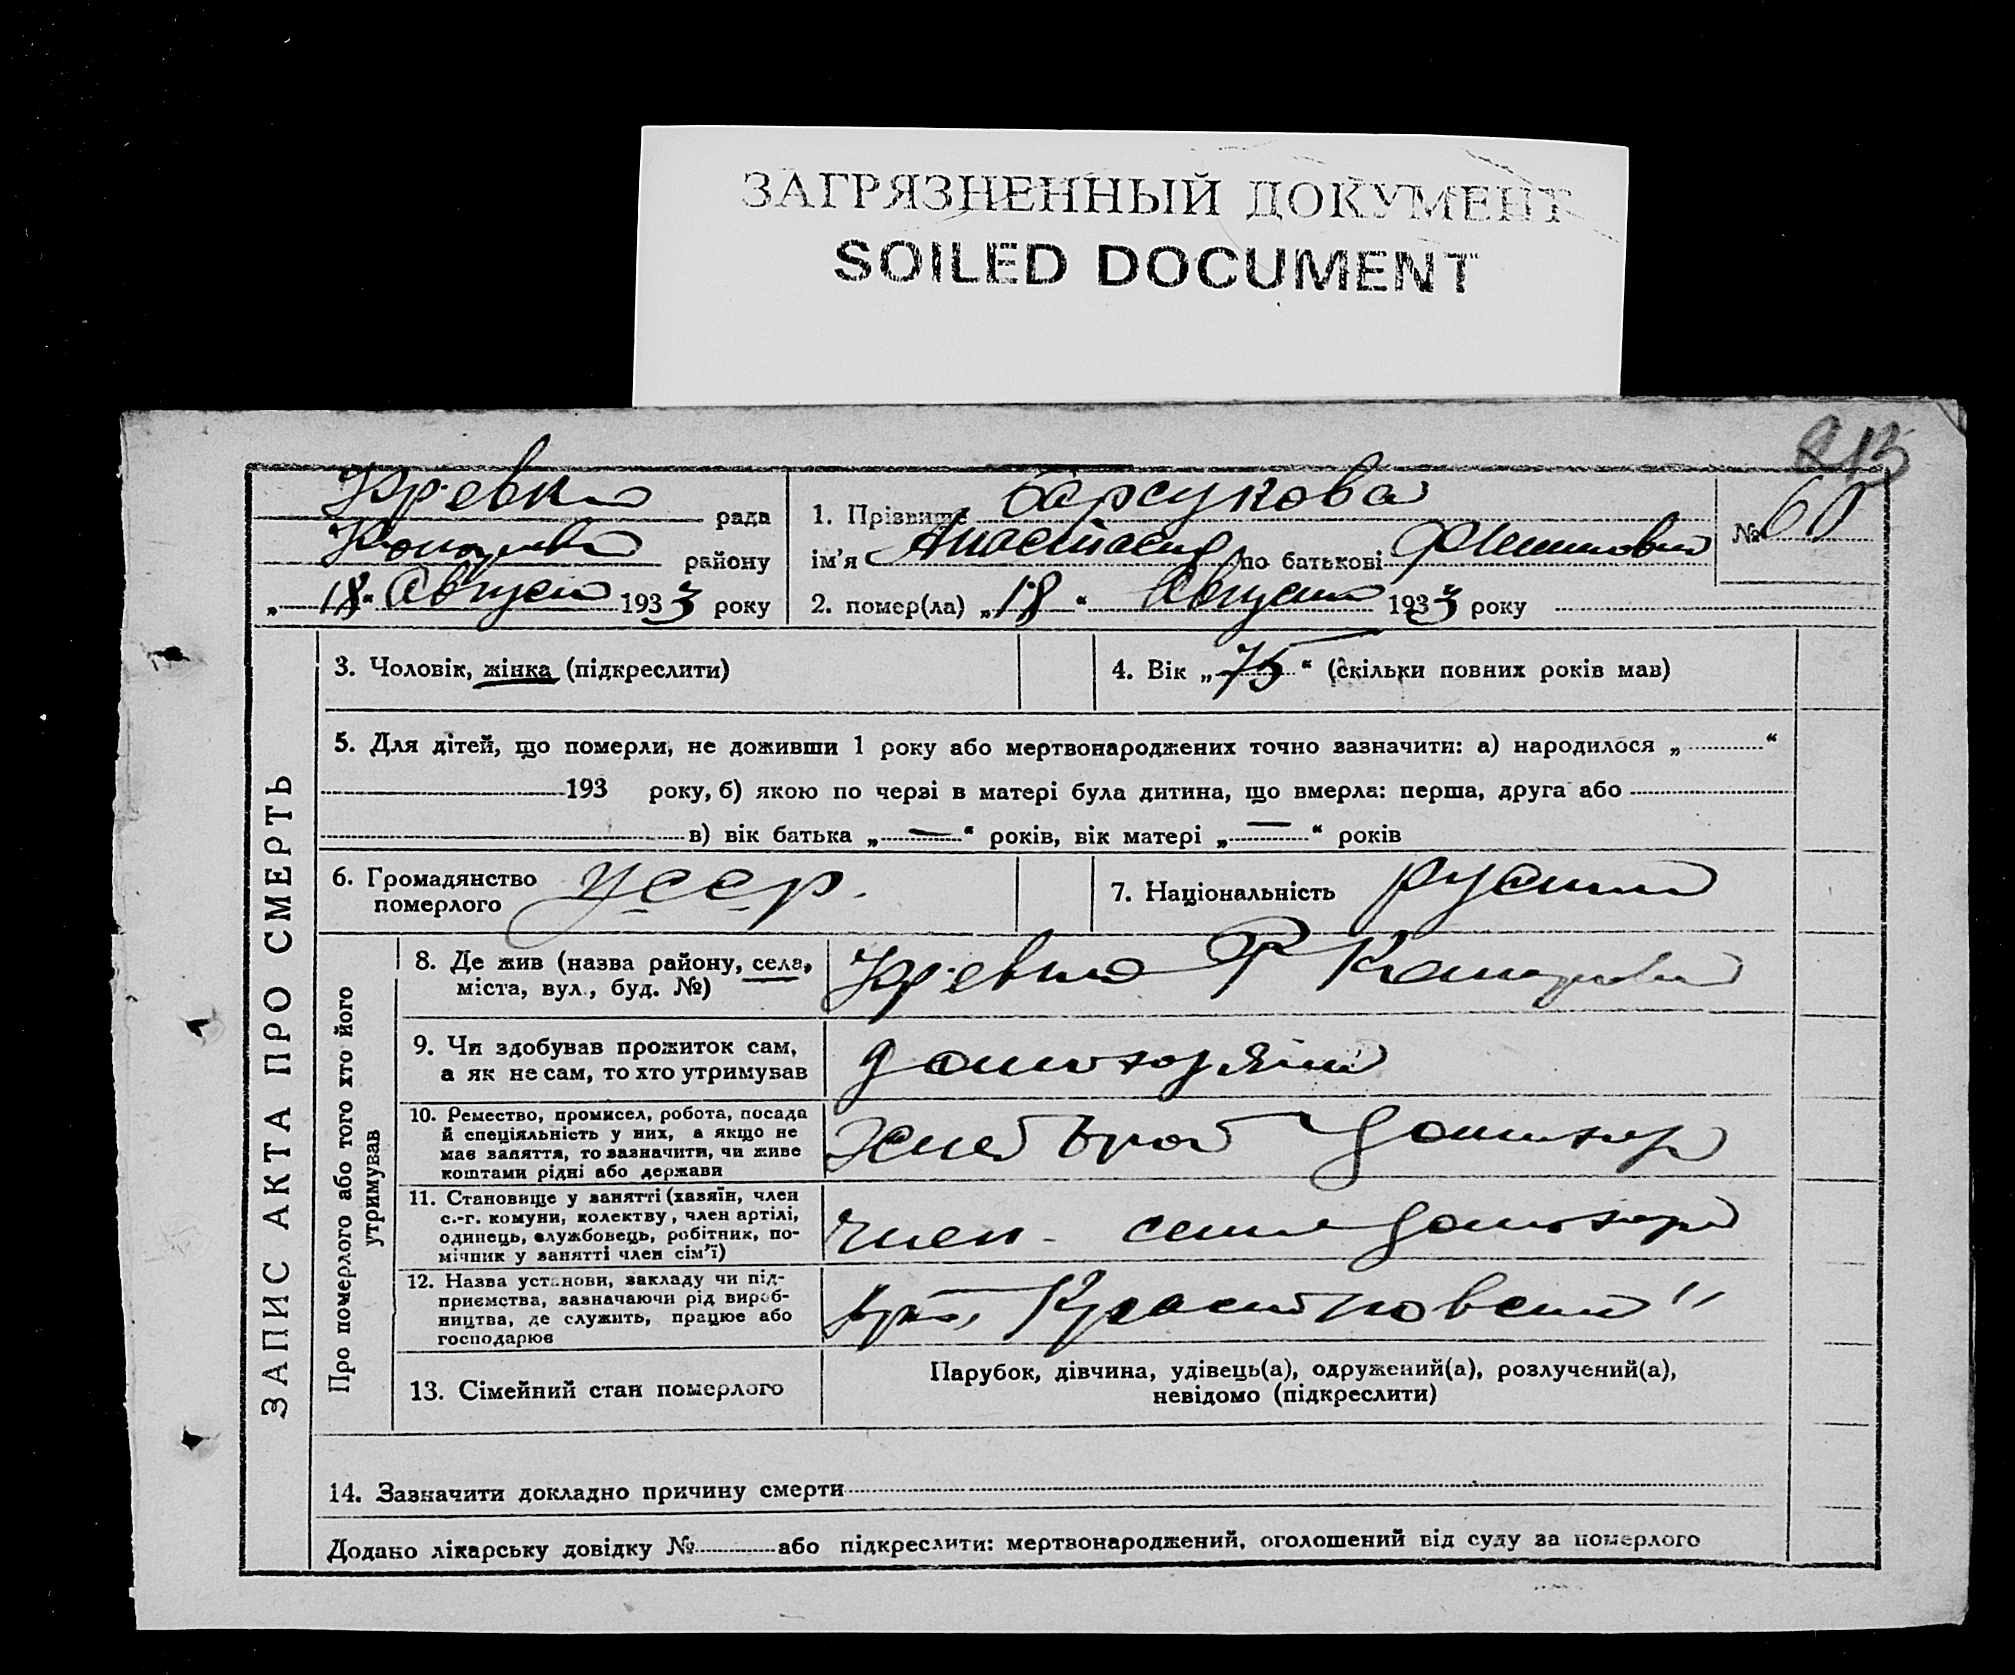 ЗАГРЯЗНЕННЫЙ ДОКУМЕНТ
SOILED DOCUMENT
213
рада
району
„18“ Август 1933 року
1. Прізвище Барсукова
ім'я Анастасия по батькові
№ 60
2. помер(ла) „18“ Август 1933 року
ЗАПИС АКТА ПРО СМЕРТЬ
3. Чоловік, жінка (підкреслити)
4. Вік „75“ (скільки повних років мав)
5. Для дітей, що померли, не доживши 1 року або мертвонароджених точно зазначити: а) народилося „ “
193 року, б) якою по черзі в матері була дитина, що вмерла: перша, друга або
в) вік батька „—“ років, вік матері „—“ років
6. Громадянство
померлого
УССР.
7. Національність
Про померлого або того хто його
утримував
8. Де жив (назва району, села,
міста, вул., буд. №)
9. Чи здобував прожиток сам,
а як не сам, то хто утримував
10. Ремество, промисел, робота, посада
й спеціяльність у них, а якщо не
має заняття, то зазначити, чи живе
коштами рідні або держави
11. Становище у занятті (хазяїн, член
с.-г. комуни, колектву, член артілі,
одинець, службовець, робітник, по-
мічник у занятті член сім'ї)
член
12. Назва установи, закладу чи під-
приємства, зазначаючи рід вироб-
ництва, де служить, працює або
господарює
13. Сімейний стан померлого
Парубок, дівчина, удівець(а), одружений(а), розлучений(а),
невідомо (підкреслити)
14. Зазначити докладно причину смерти
Додано лікарську довідку № або підкреслити: мертвонароджений, оголошений від суду за померлого